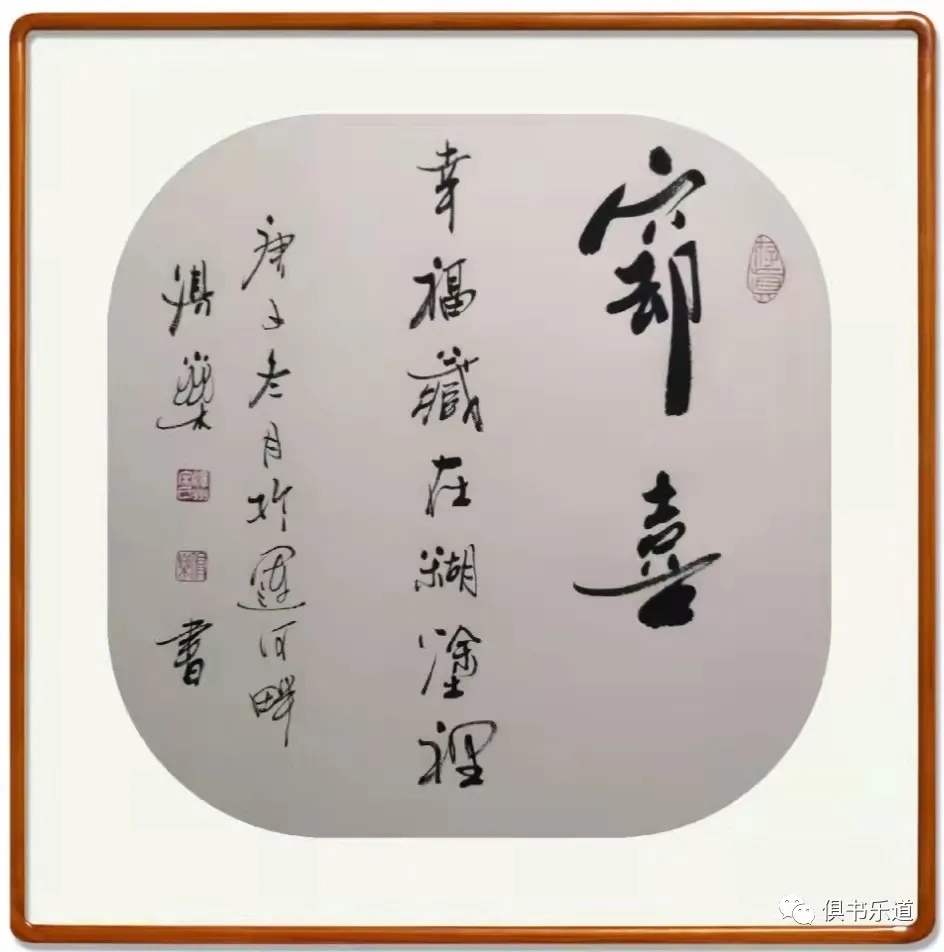 窃喜
幸福藏在糊塗裡
庚子冬月於運河畔
俱樂
書
俱书乐道